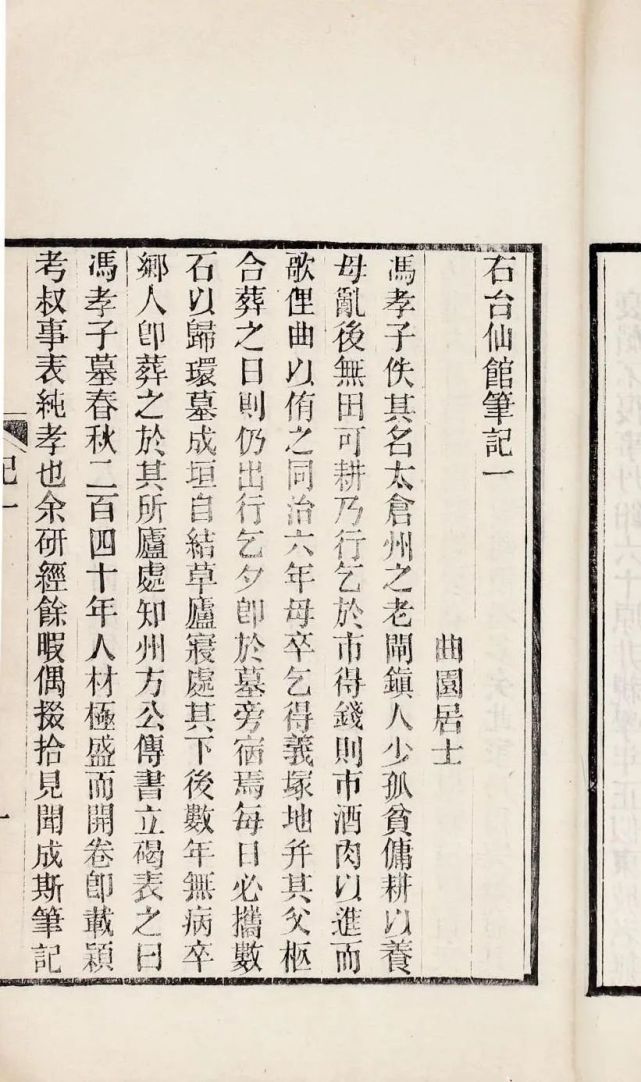 右台仙館筆記一
曲園居士
馮孝子佚其名太倉州之老閘鎮人少孤貧傭耕以養
母亂後無田可耕乃行乞於市得錢則市酒肉以進而
歌俚曲以侑之同治六年母卒乞得義塚地幷其父柩
合葬之日則仍出行乞夕卽於墓旁宿焉每日必攜數
石以歸環墓成垣自結草廬寢處其下後數年無病卒
鄉人卽葬之於其所廬處知州方公傳書立碣表之曰
馮孝子墓春秋二百四十年人材極盛而開卷卽載潁
考叔事表純孝也余研經餘暇偶掇拾見聞成斯筆記
記一
一